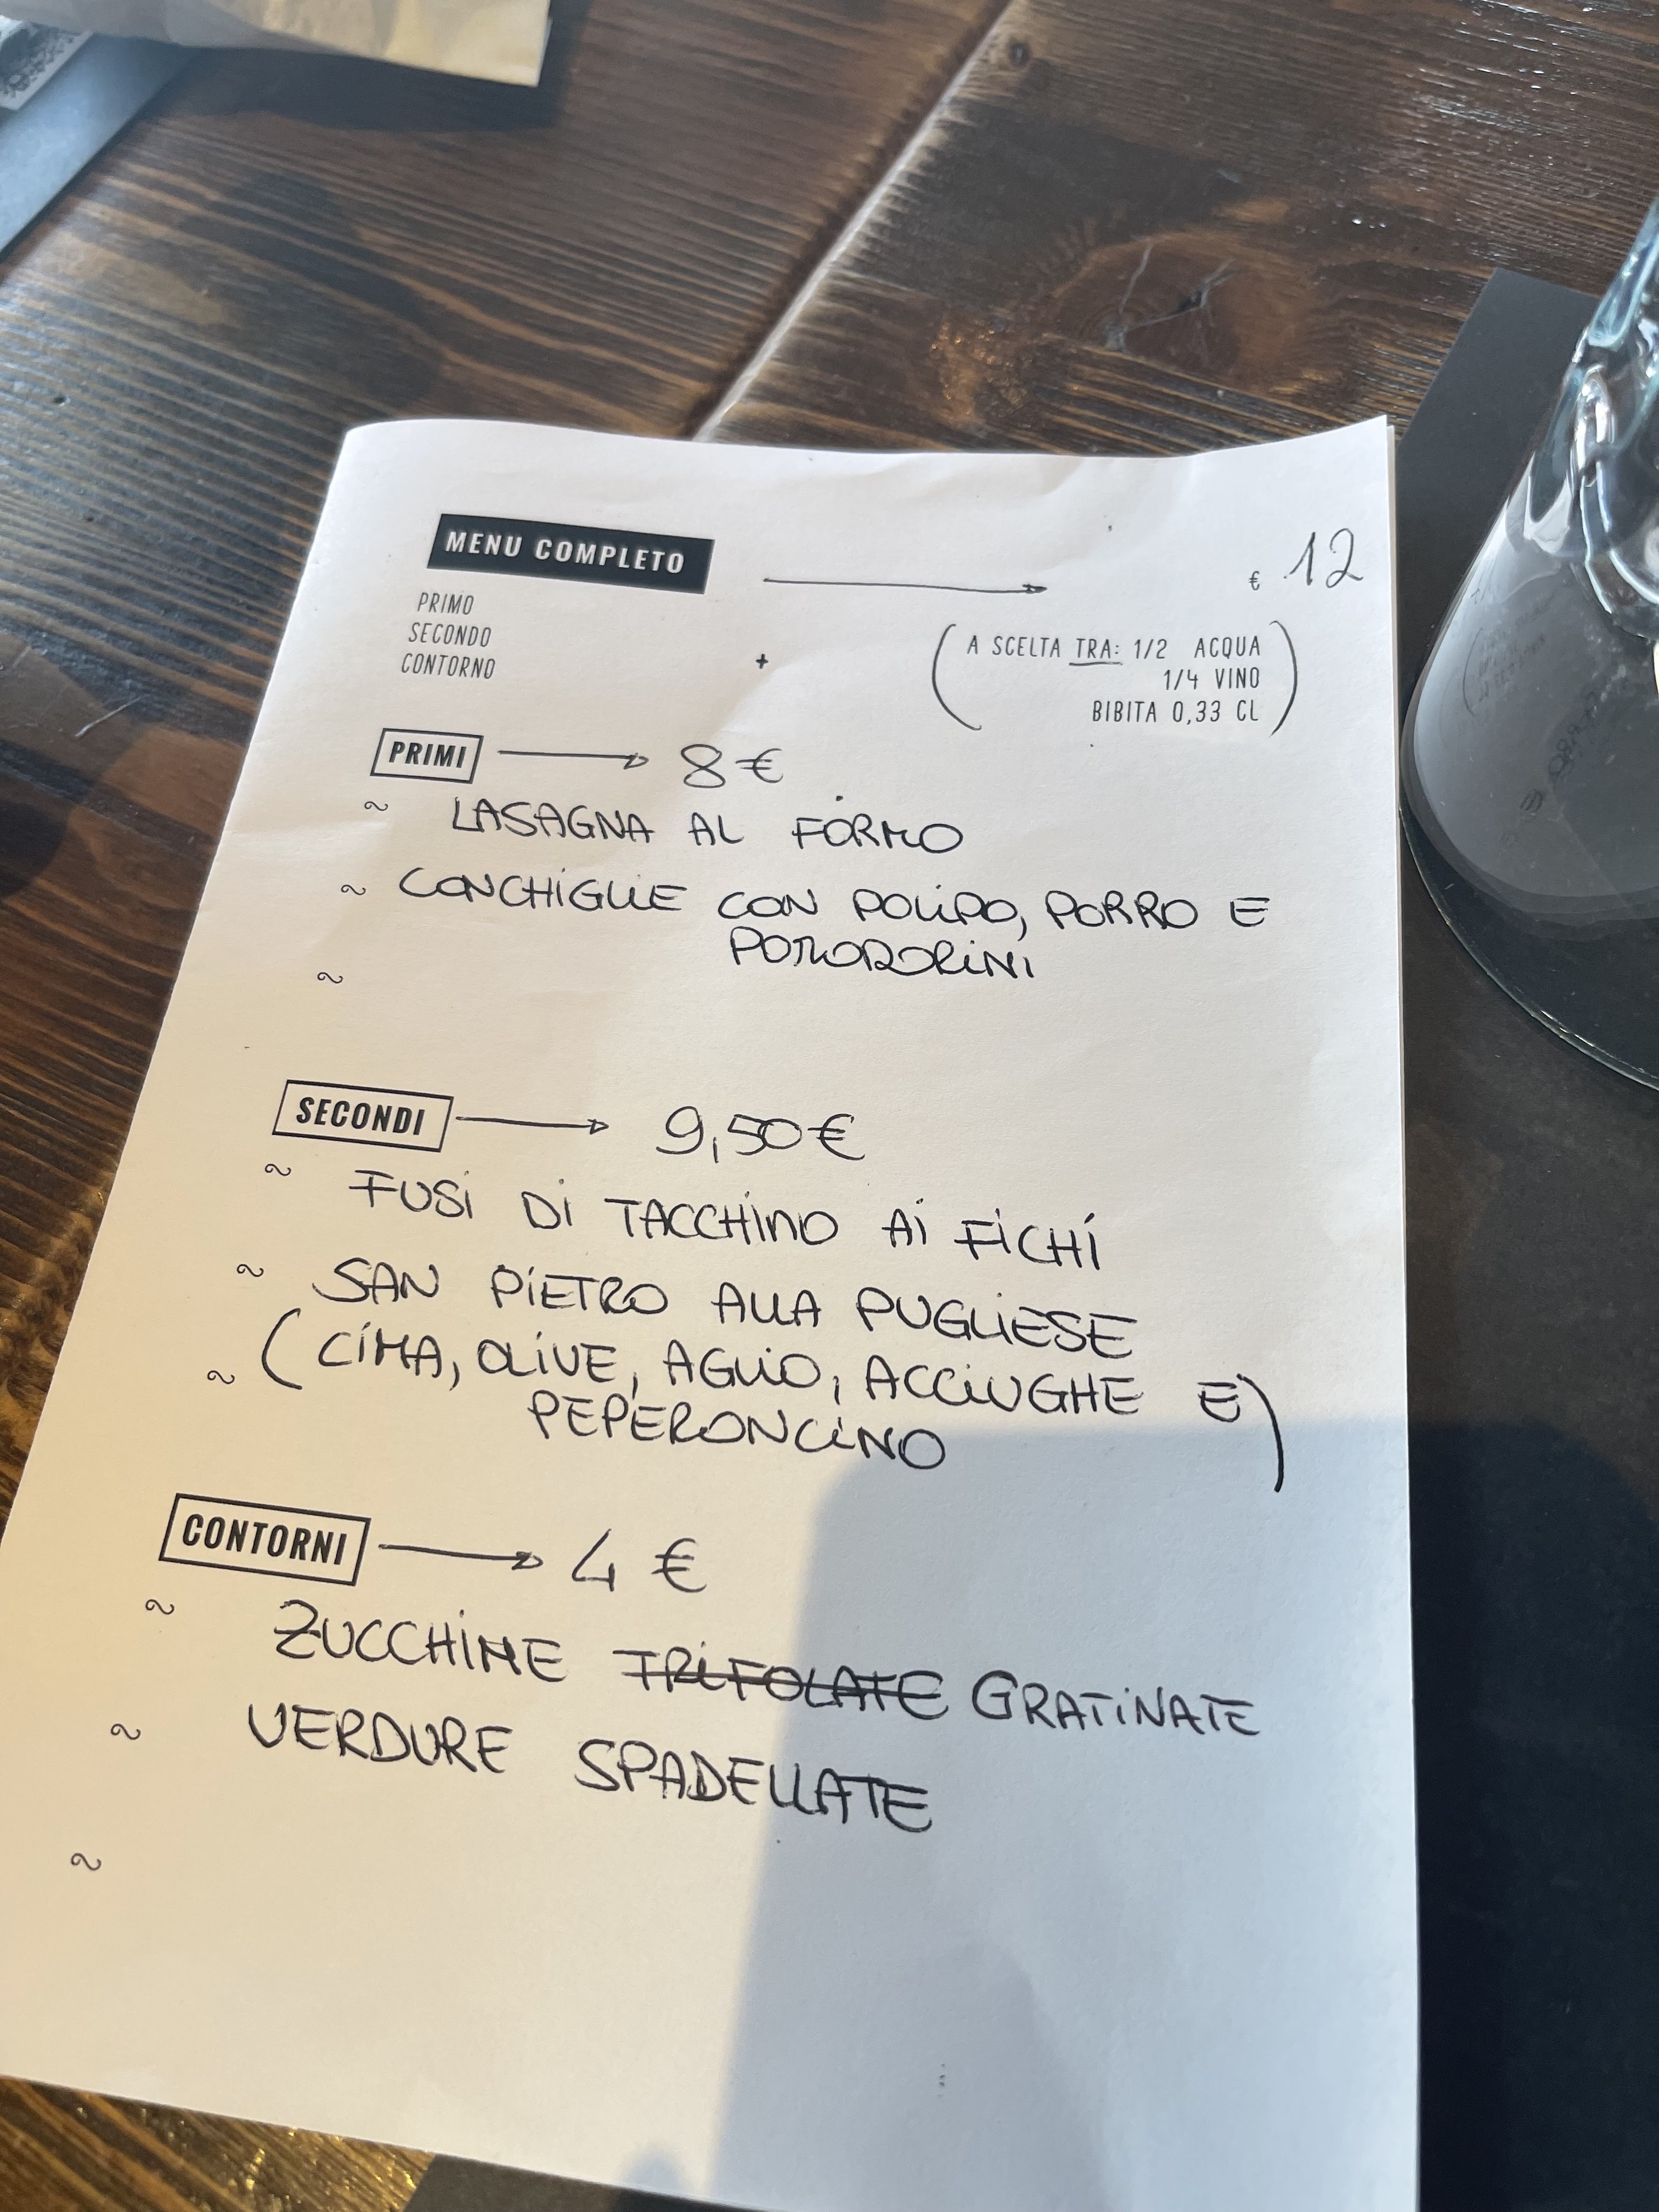 MENU COMPLETO
€ 12
PRIMO
SECONDO
CONTORNO
+
(A SCELTA TRA: 1/2 ACQUA
1/4 VINO
BIBITA 0,33 CL)
PRIMI 8 €
~ LASAGNA AL FORNO
~ CONCHIGLIE CON POLIPO, PORRO E
POMODORINI
~
SECONDI 9,50 €
~ FUSI DI TACCHINO AI FICHI
~ SAN PIETRO ALLA PUGLIESE
~ (CIMA, OLIVE, AGLIO, ACCIUGHE E
PEPERONCINO)
CONTORNI 4 €
~ ZUCCHINE TRIFOLATE GRATINATE
~ VERDURE SPADELLATE
~